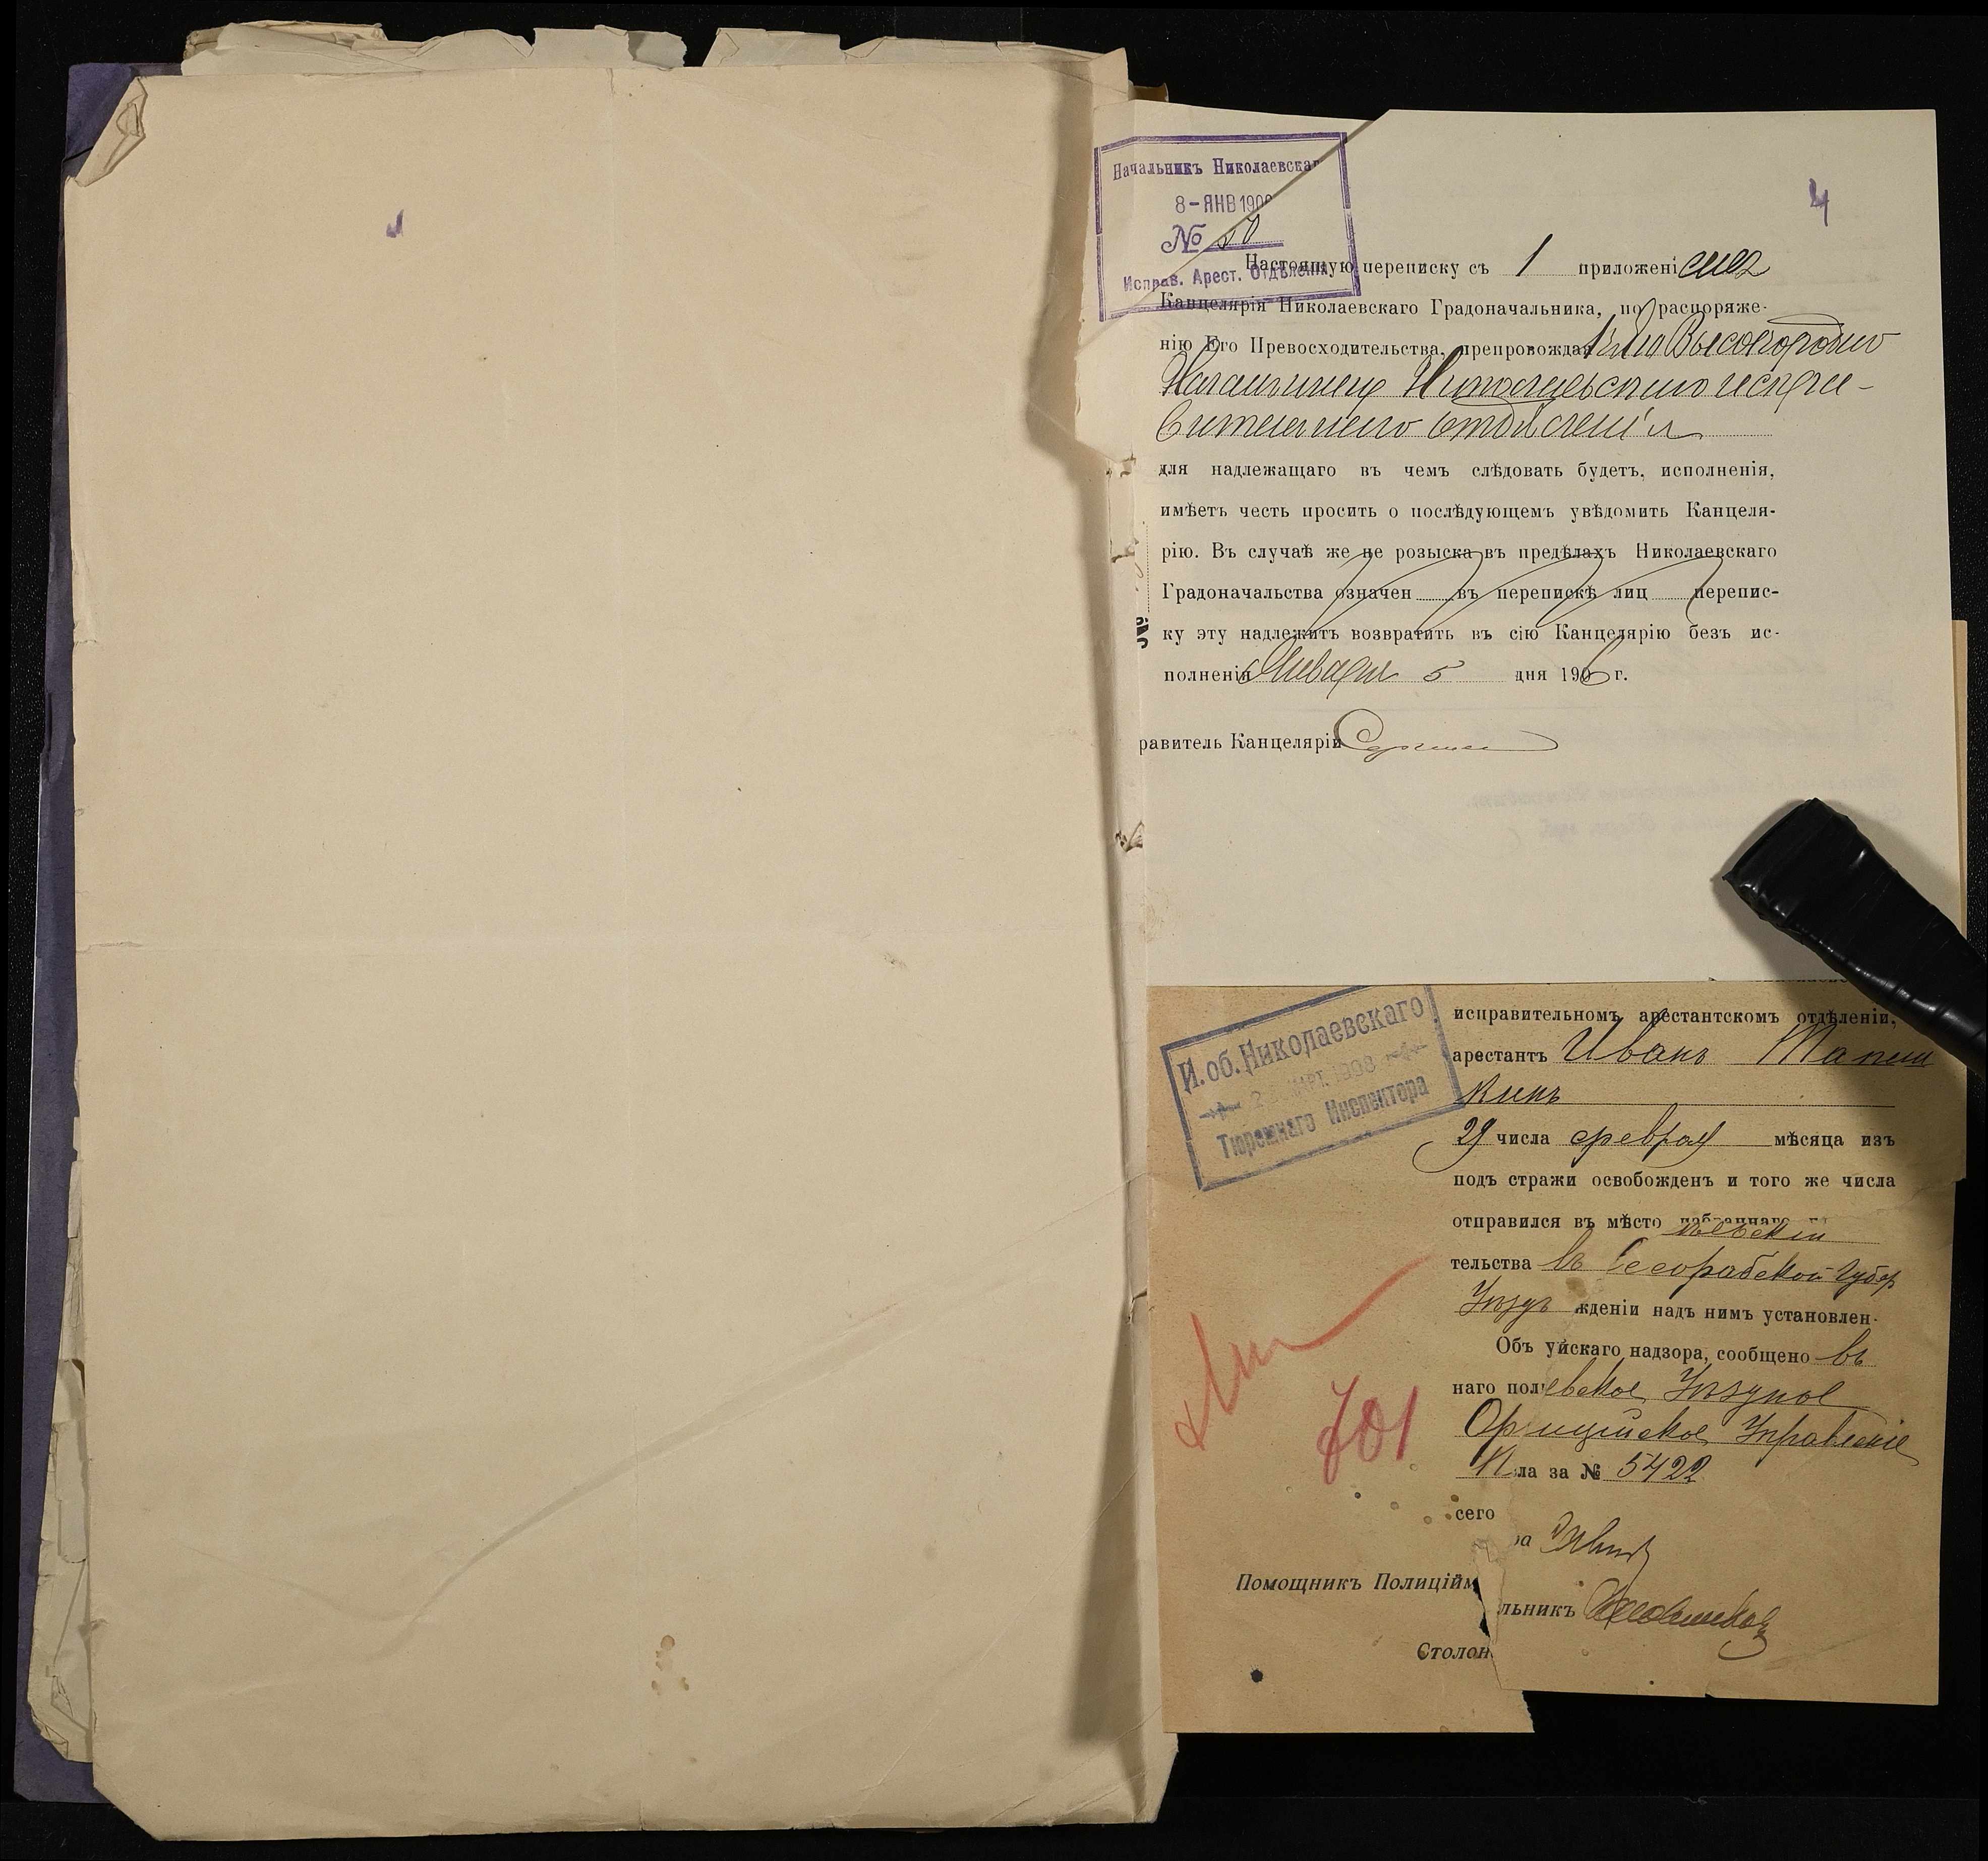 Начальникъ Николаевскаг
8-ЯНВ 190
№
Исправ. Арест. Отдѣленія
24
Настоящую переписку съ 1 приложені емъ
Канцелярія Николаевскаго Градоначальника, по распоряже-
нію Его Превосходительства, препровождая Его Высокородію
Начальнику Николаевскаго испра-
вительнаго отдѣленія
для надлежащаго въ чемъ слѣдовать будетъ, исполненія,
имѣетъ честь просить о послѣдующемъ увѣдомить Канцеля-
рію. Въ случаѣ же не розыска въ предѣлахъ Николаевскаго
Градоначальства означен въ перепискѣ лиц перепис-
ку эту надлежитъ возвратить въ сію Канцелярію безъ ис-
полненія Января 5 дня 190 г.
равитель Канцеляріи
И. об. Николаевскаго
МАРТ. 1908
Тюремнаго Инспектора
исправительномъ арестантскомъ отдѣленіи,
арестантъ Иванъ Тапш
кинъ
29 числа февраля мѣсяца изъ
подъ стражи освобожденъ и того же числа
отправился въ мѣсто
тельства въ губер
Уѣзду жденіи надъ нимъ установлен-
Объ уйскаго надзора, сообщено въ
наго пол евское Уѣздное
Ор ицейское Управленіе
ла за № 5422
сего
ра
Помощникъ Полиційм
льникъ
Столон
701